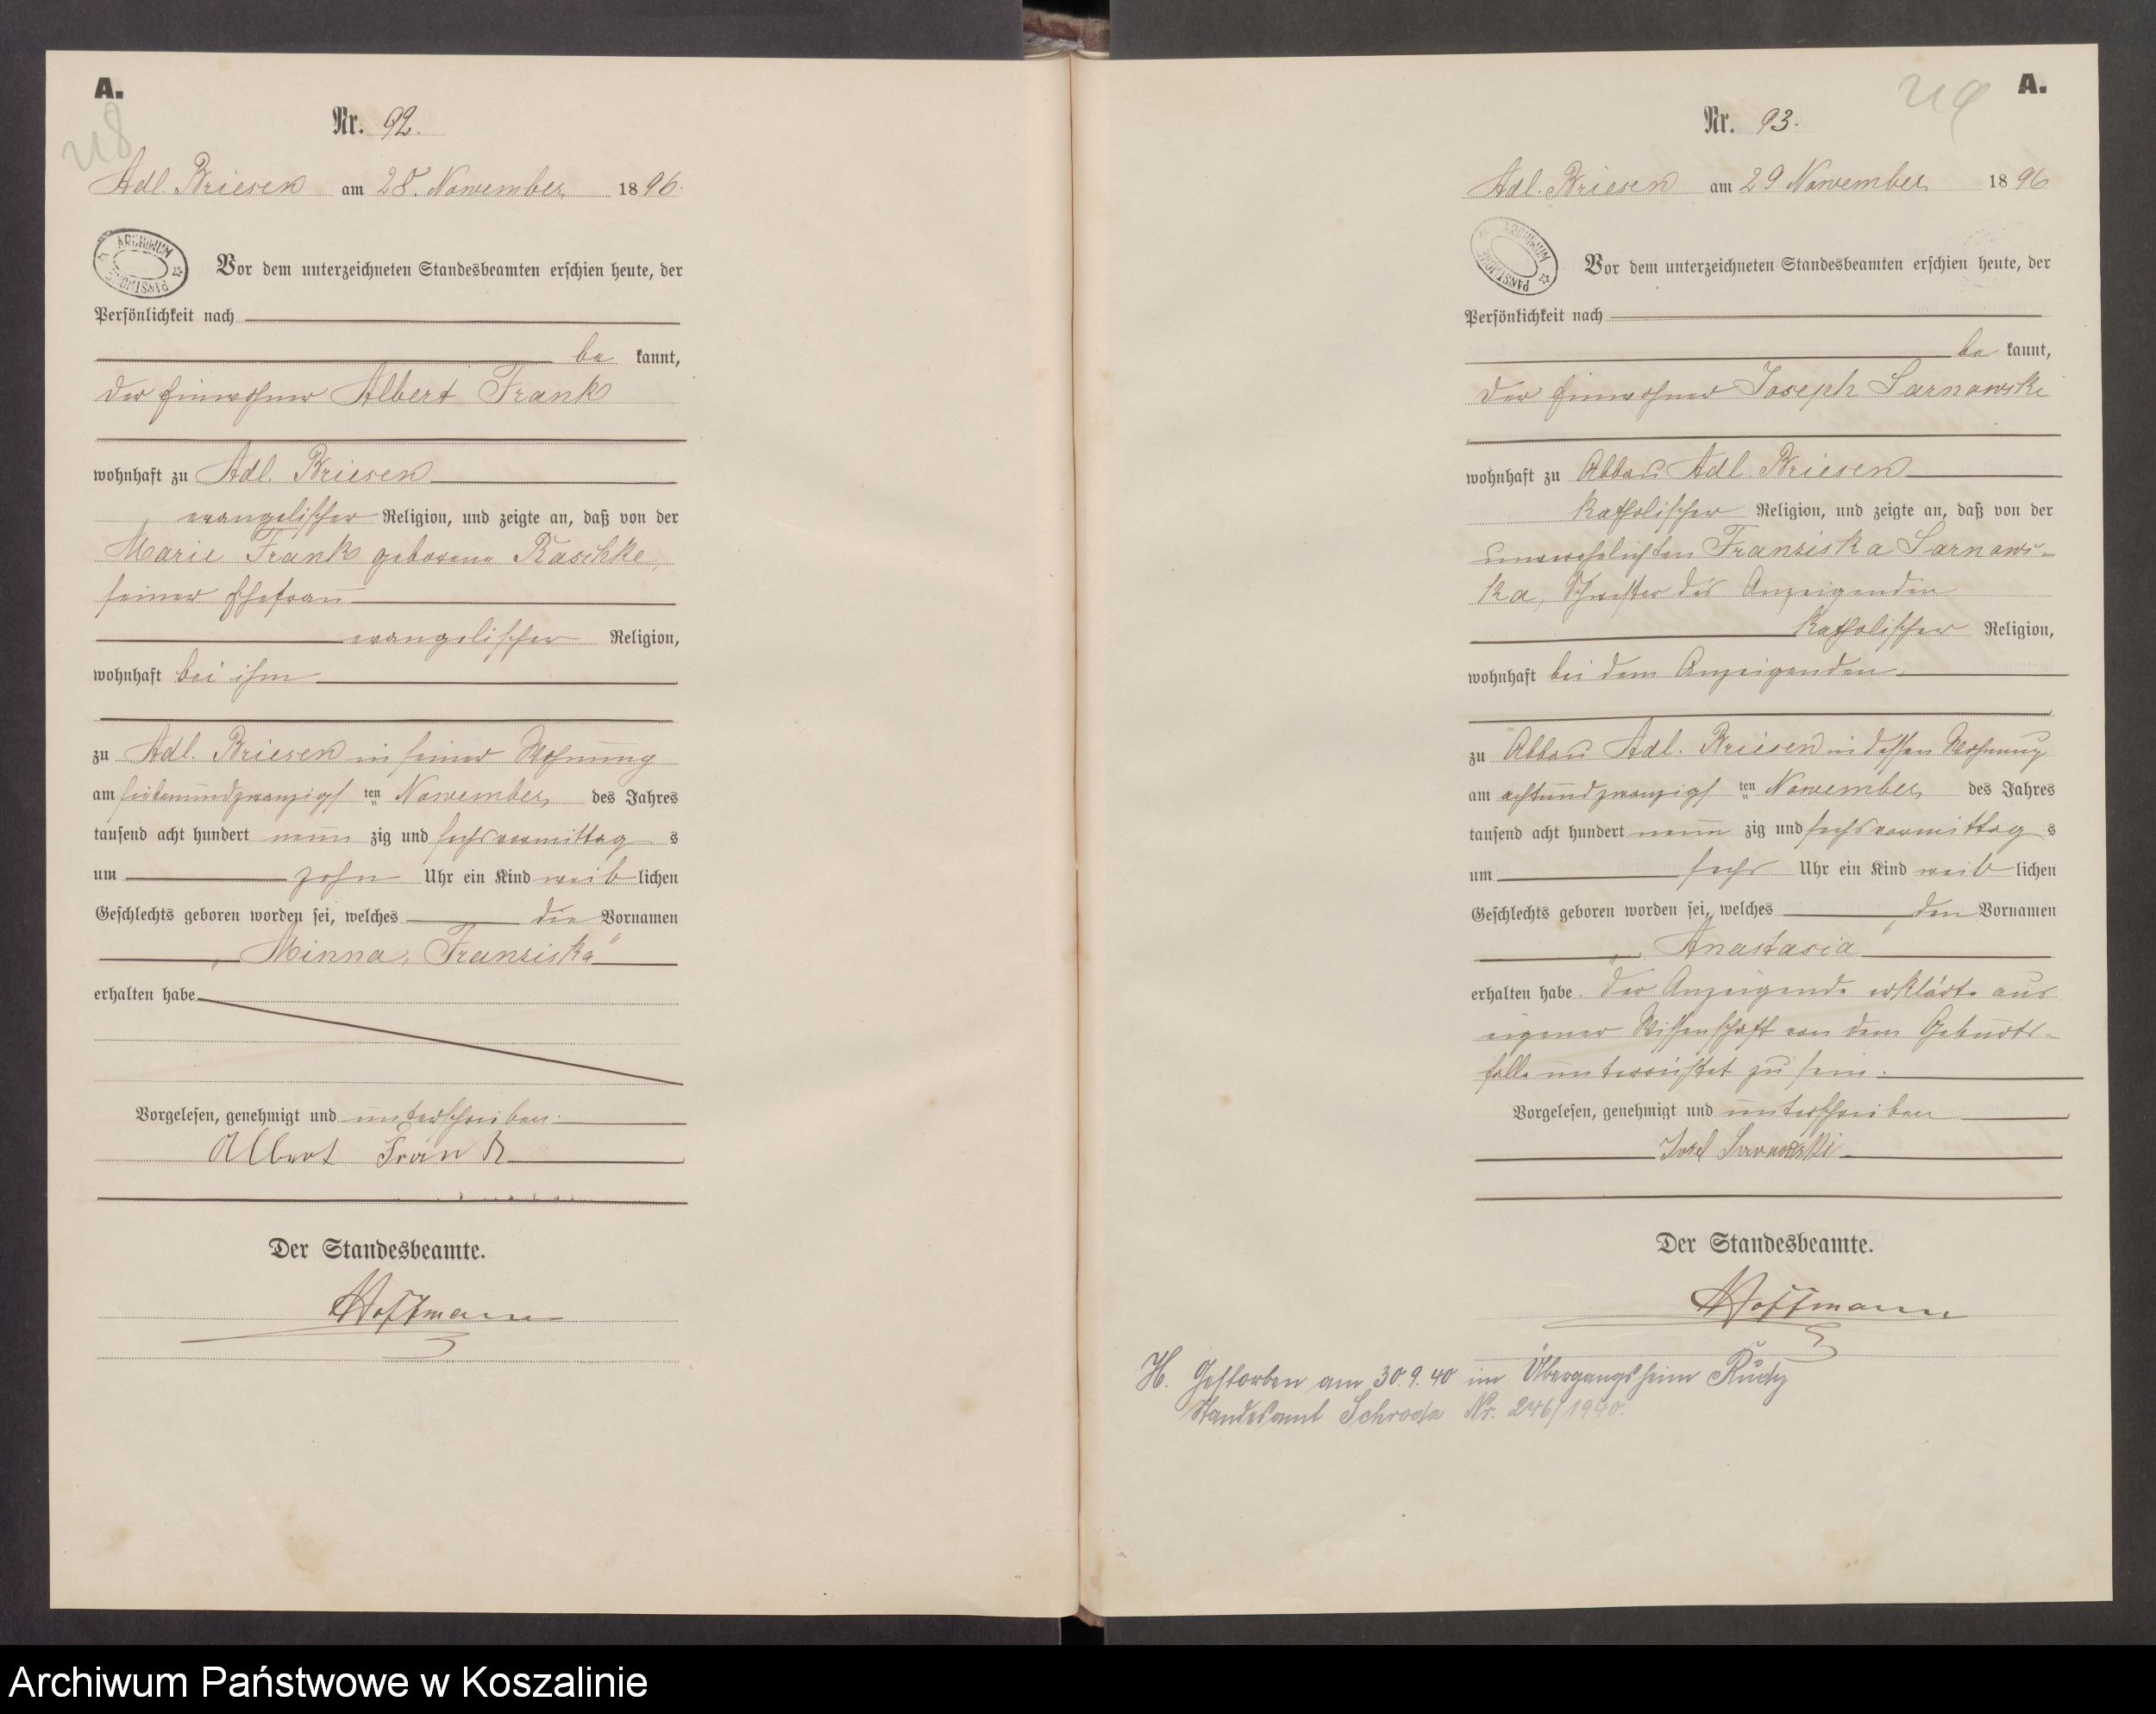 A.
218
Nr. 92.
Adl. Briesen am 28. November 1896.
ARCHIWUM PAŃSTWOWE
Vor dem unterzeichneten Standesbeamten erschien heute, der
Persönlichkeit nach
be kannt,
der Einwohner Albert Frank
wohnhaft zu Adl. Briesen
evangelischer Religion, und zeigte an, daß von der
Marie Frank geborene Raschke,
seiner Ehefrau
evangelischer Religion,
wohnhaft bei ihm
zu Adl. Briesen in seiner Wohnung
am siebenundzwanzigsten November des Jahres
tausend acht hundert neun zig und sechs vormittag s
um zehn Uhr ein Kind weib lichen
Geschlechts geboren worden sei, welches die Vornamen
„Minna, Franziska"
erhalten habe
Vorgelesen, genehmigt und unterschrieben.
Albert Frank
Der Standesbeamte.
Hoffmann
A.
219
Nr. 93.
Adl. Briesen am 29 November 1896
ARCHIWUM PAŃSTWOWE
Vor dem unterzeichneten Standesbeamten erschien heute, der
Persönlichkeit nach
be kannt,
der Einwohner Joseph Sarnowski
wohnhaft zu Abbau Adl. Briesen
katholischer Religion, und zeigte an, daß von der
unverehelichten Franziska Sarnows-
ka, Schwester des Anzeigenden
katholischer Religion,
wohnhaft bei dem Anzeigenden
zu Abbau Adl. Briesen in dessen Wohnung
am achtundzwanzigsten November des Jahres
tausend acht hundert neun zig und sechs vormittag s
um sechs Uhr ein Kind weib lichen
Geschlechts geboren worden sei, welches den Vornamen
„Anastasia"
erhalten habe. Der Anzeigende erklärte aus
eigener Wissenschaft von dem Geburts-
falle unterrichtet zu sein.
Vorgelesen, genehmigt und unterschrieben
Josef Sarnowski
Der Standesbeamte.
Hoffmann
H. Gestorben am 30.9.40 im Übergangsheim Rudy
Standesamt Schroda Nr. 246/1940.
Archiwum Państwowe w Koszalinie